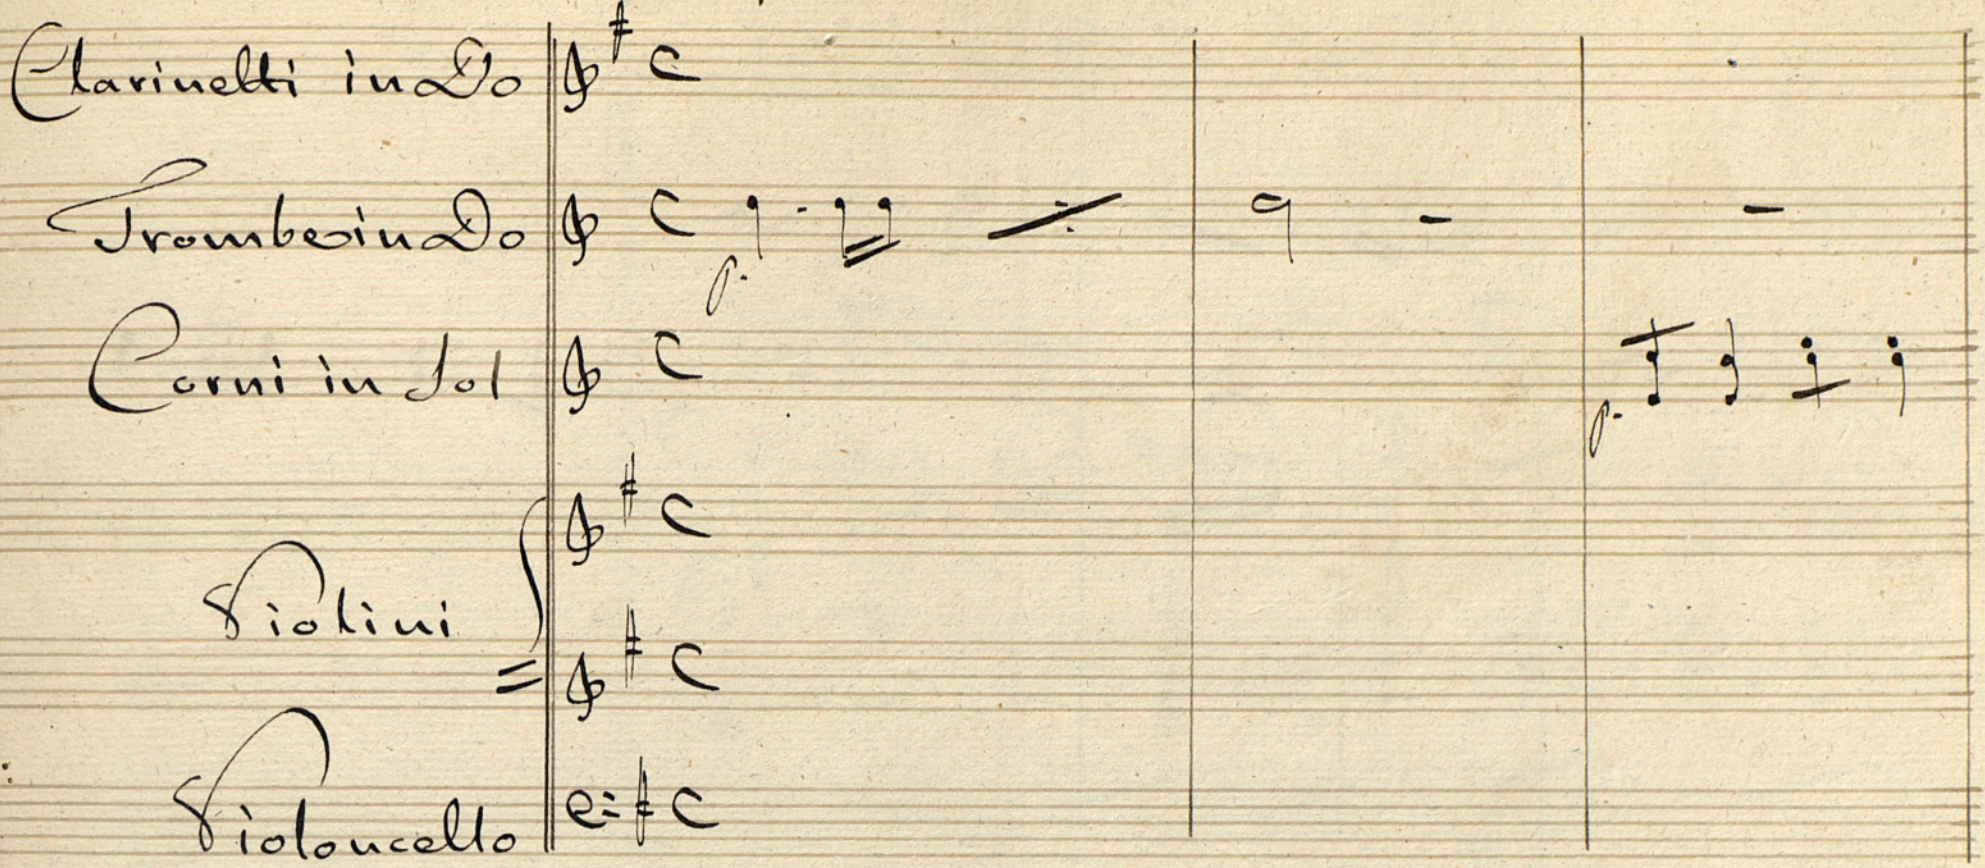 Clarinetti in Do
Trombe in Do
p.
Corni in Sol
p.
Violini
Violoncello